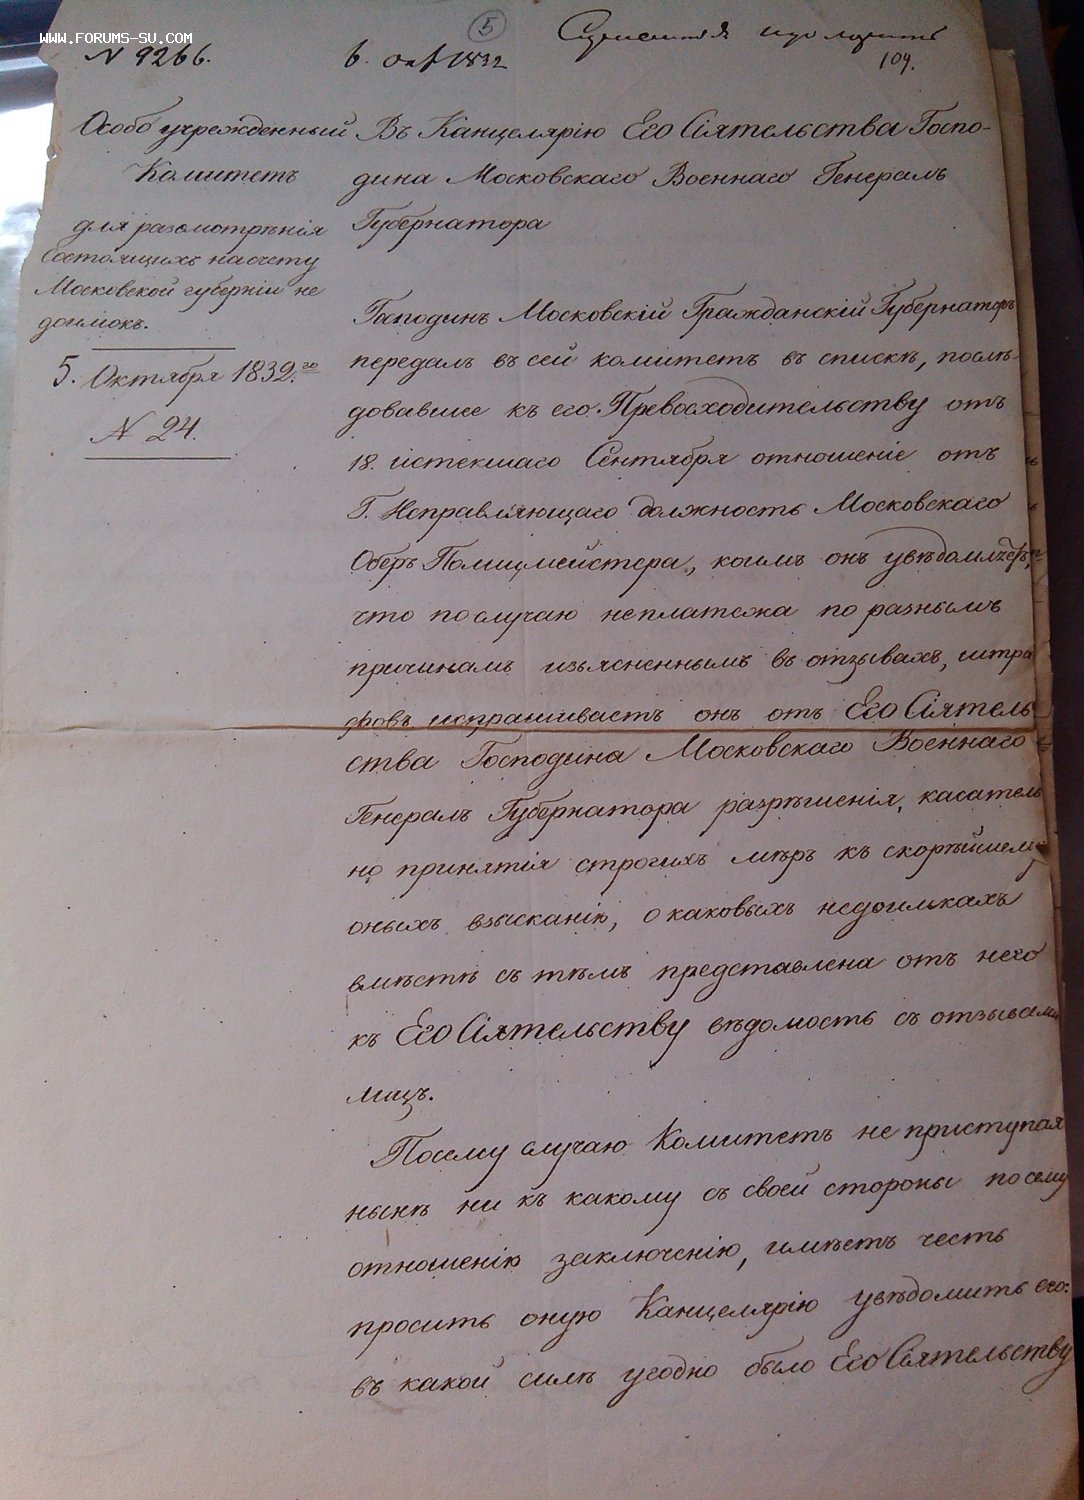 WWW.FORUMS-SU.COM
N 9266.
6. окт 1832
5
109.
Особо учрежденный
Комитетъ
для разсмотрѣнія
состоящихъ на счету
Московской губерніи не
доимокъ.
5. Октября 1832.го
N 24.
Въ Канцелярію Его Сіятельства Госпо-
дина Московскаго Военнаго Генералъ
Губернатора
Господинъ Московскій Гражданскій Губернаторъ
передалъ въ сей комитетъ въ спискѣ, послѣ-
довавшее къ его Превосходительству отъ
18. истекшаго Сентября отношеніе отъ
Г. Исправляющаго должность Московскаго
Оберъ Полицмейстера, коимъ онъ увѣдомляетъ,
что по случаю неплатежа по разнымъ
причинамъ изъясненнымъ въ отзывахъ, штра
фовъ испрашиваетъ онъ отъ Его Сіятель
ства Господина Московскаго Военнаго
Генералъ Губернатора разрѣшенія, касатель
но принятія строгихъ мѣръ къ скорѣйшему
оныхъ взысканію, о каковыхъ недоимкахъ
вмѣстѣ съ тѣмъ представлена отъ него
къ Его Сіятельству вѣдомость съ отзывами
лицъ.
По сему случаю Комитетъ не приступая
нынѣ ни къ какому съ своей стороны по сему
отношенію заключенію, имѣетъ честь
просить оную Канцелярію увѣдомить его:
въ какой силѣ угодно было Его Сіятельству